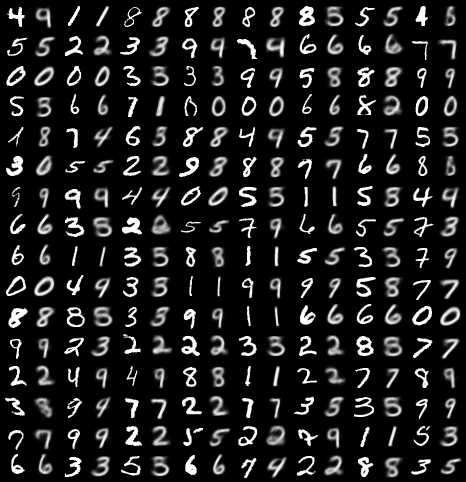 4 9 1 1 8 8 8 8 8 8 8 5 5 5 1 5
5 5 2 2 3 3 9 9 7 9 6 6 6 6 7 7
0 0 0 0 3 3 3 3 9 9 5 8 8 8 9 9
5 3 6 6 7 1 0 0 0 0 6 6 8 2 0 0
1 8 7 4 6 3 8 8 4 9 5 3 7 7 5 5
3 0 5 5 2 2 9 8 8 8 7 7 6 6 8 8
9 9 9 9 4 4 0 0 5 5 1 1 5 8 4 9
6 6 3 5 2 0 5 5 7 9 6 6 5 5 7 3
6 6 1 1 3 5 8 8 1 1 5 5 3 3 7 9
0 0 4 9 3 3 1 1 9 9 9 9 5 8 7 7
8 8 8 5 3 3 9 9 1 1 6 6 6 6 0 0
9 9 2 3 2 2 2 2 3 5 2 2 8 5 7 7
2 2 4 9 4 9 8 8 1 1 2 2 7 7 8 9
3 8 9 4 7 7 2 2 7 7 3 5 3 5 9 9
7 7 9 9 2 2 5 5 2 2 9 1 1 5 3
6 6 3 3 5 5 6 6 7 4 2 2 8 8 3 5